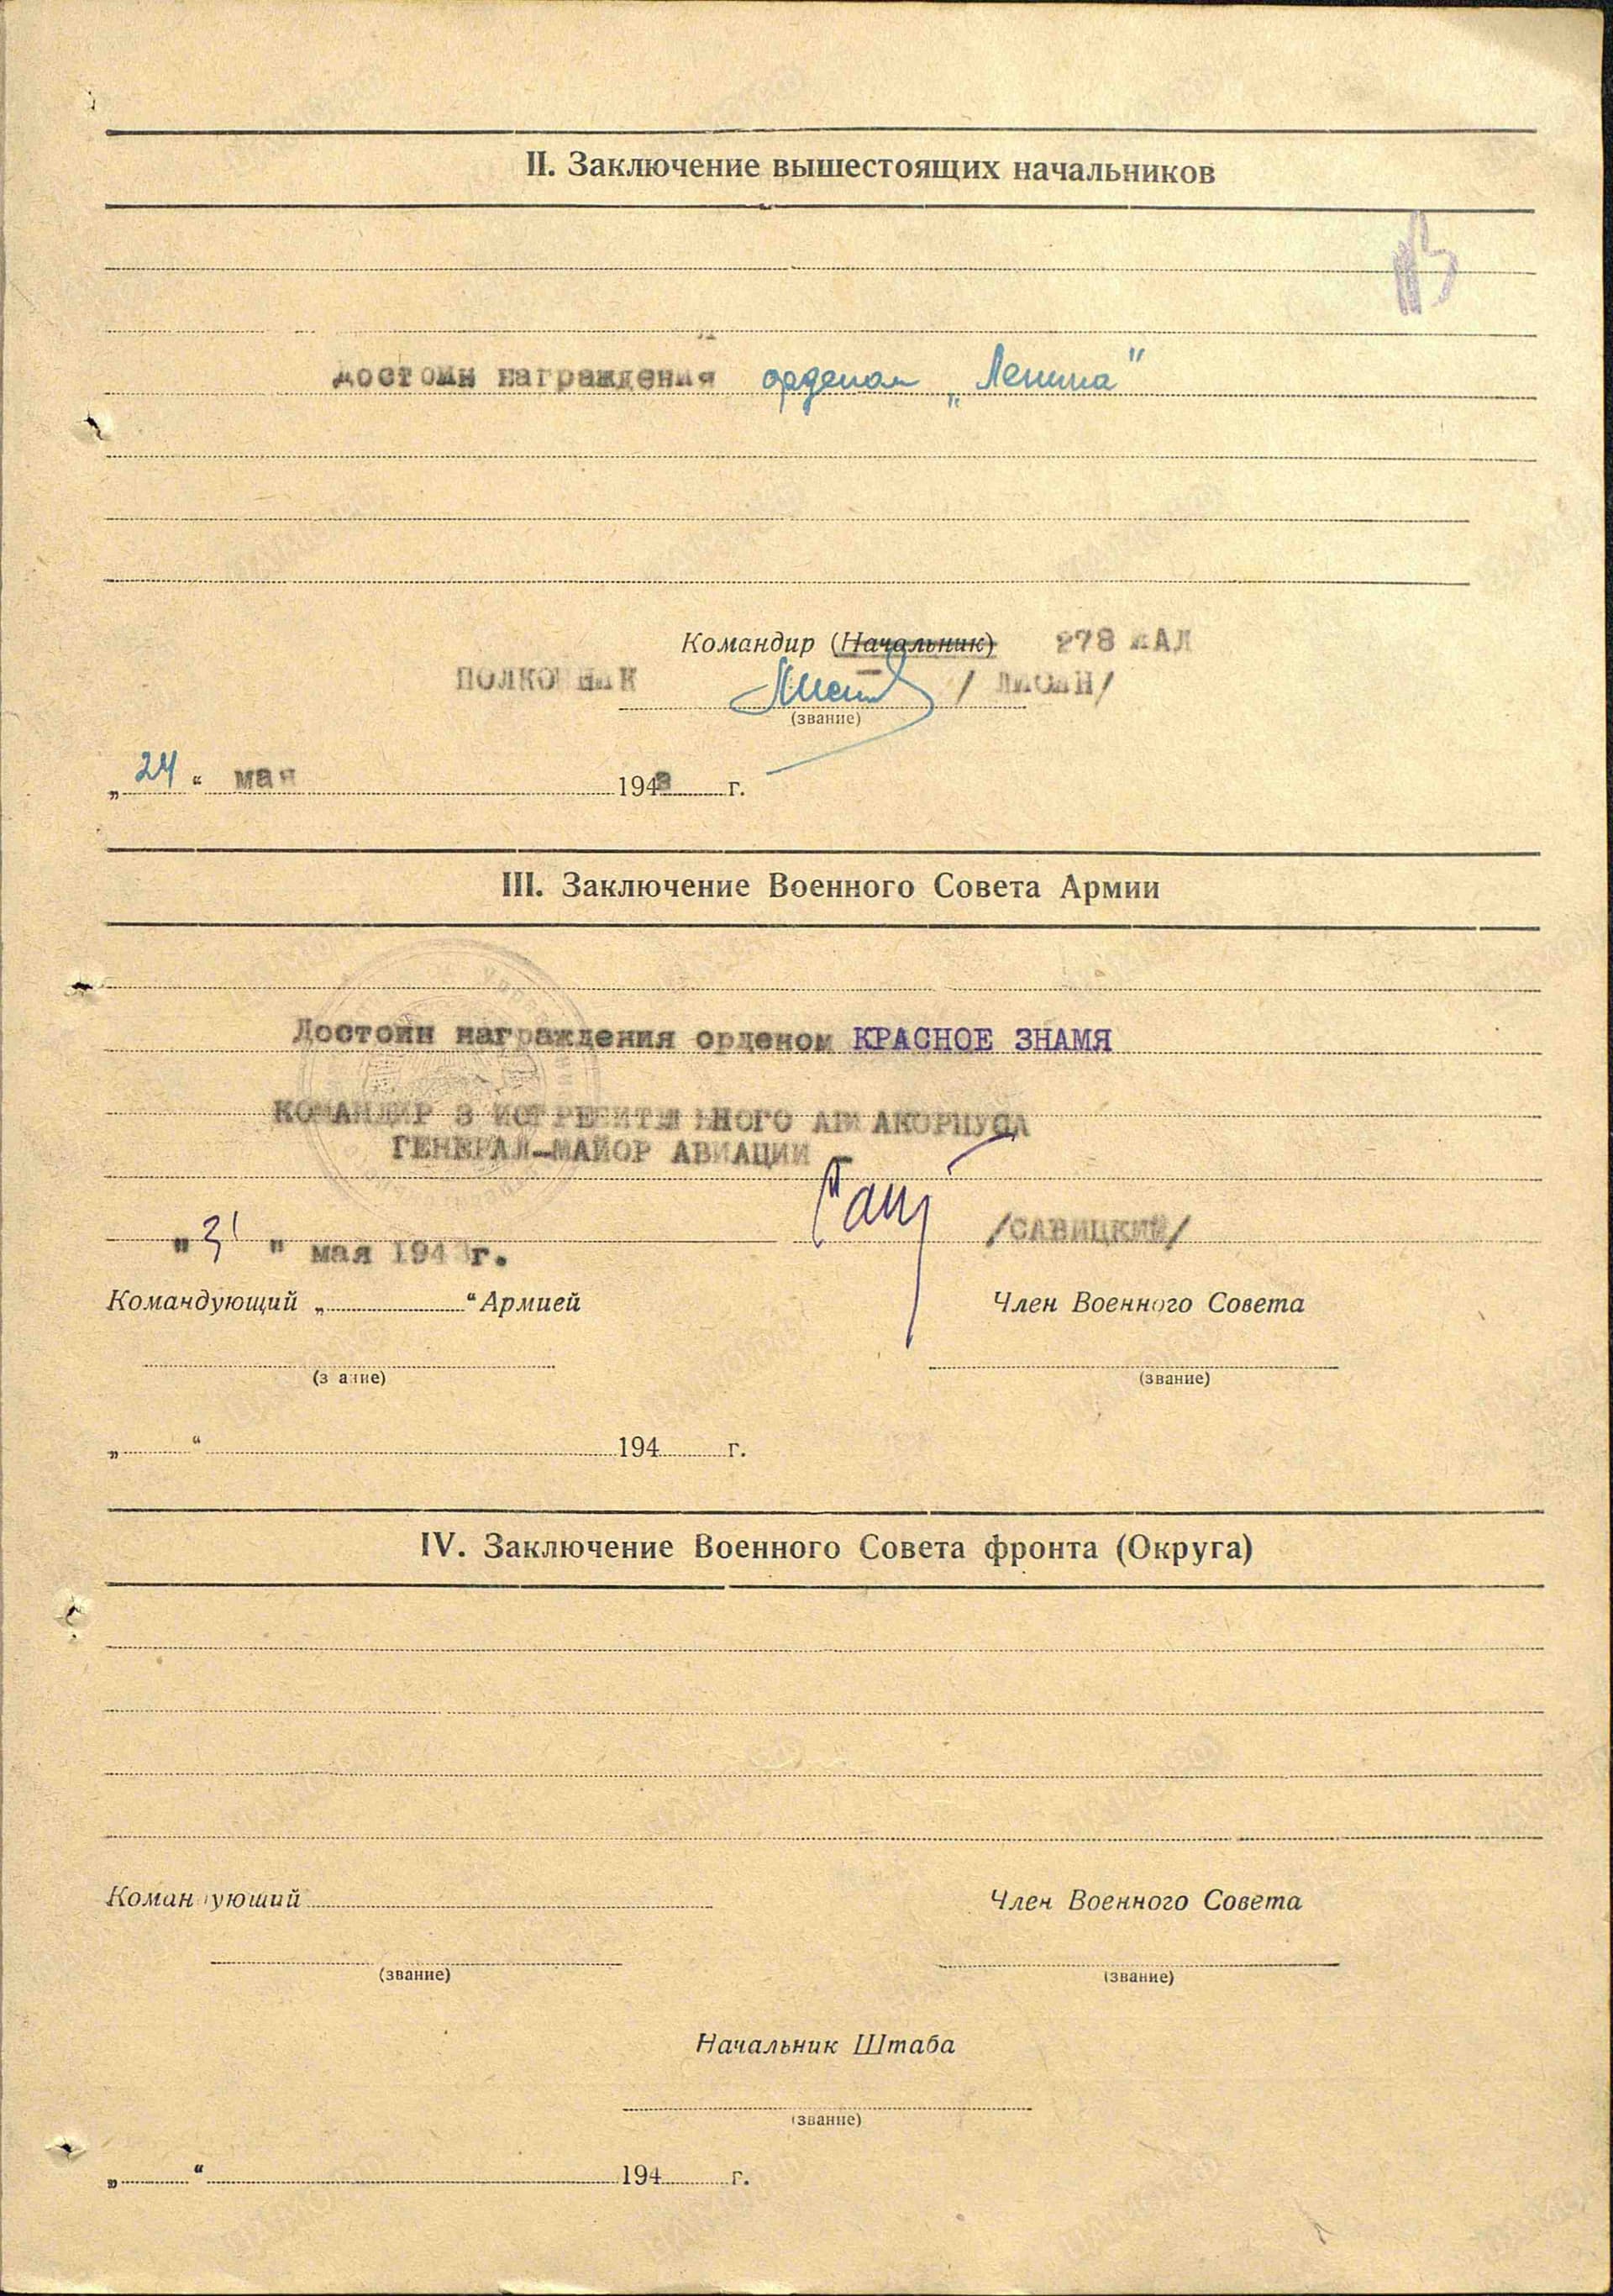 II. Заключение вышестоящих начальников
достоин награждения орденом „Ленина"
Командир (Начальник) 278 ИАД
ПОЛКОВНИК / ЛИСИН/
(звание)
„24“ мая 1943 г.
III. Заключение Военного Совета Армии
Достоин награждения орденом КРАСНОЕ ЗНАМЯ
КОМАНДИР 3 ИСТРЕБИТЕЛЬНОГО АВИАКОРПУСА
ГЕНЕРАЛ-МАЙОР АВИАЦИИ
/САВИЦКИЙ/
"31" мая 1943г.
Командующий „ “ Армией Член Военного Совета
(звание) (звание)
„ “ 194 г.
IV. Заключение Военного Совета фронта (Округа)
Командующий Член Военного Совета
(звание) (звание)
Начальник Штаба
(звание)
„ “ 194 г.